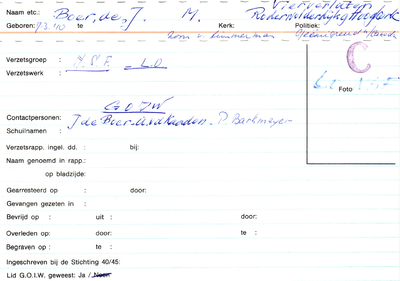 Naam etc.: Boer, de, J. M. Vierverlaten
Geboren: 7.3.'10 te Kerk: Politiek:
zoon v. timmerman
C
Verzetsgroep : N.S.F. - LO
Verzetswerk :
Foto
G.O.I.W
Contactpersonen: J de Boer - v.d. - P. Barkmeyer
Schuilnamen :
Verzetsrapp. ingel. dd. : bij:
Naam genoemd in rapp.:
op bladzijde:
Gearresteerd op : door:
Gevangen gezeten in :
Bevrijd op : uit : door:
Overleden op: door: te :
Begraven op : te :
Ingeschreven bij de Stichting 40/45:
Lid G.O.I.W. geweest: Ja / Neen